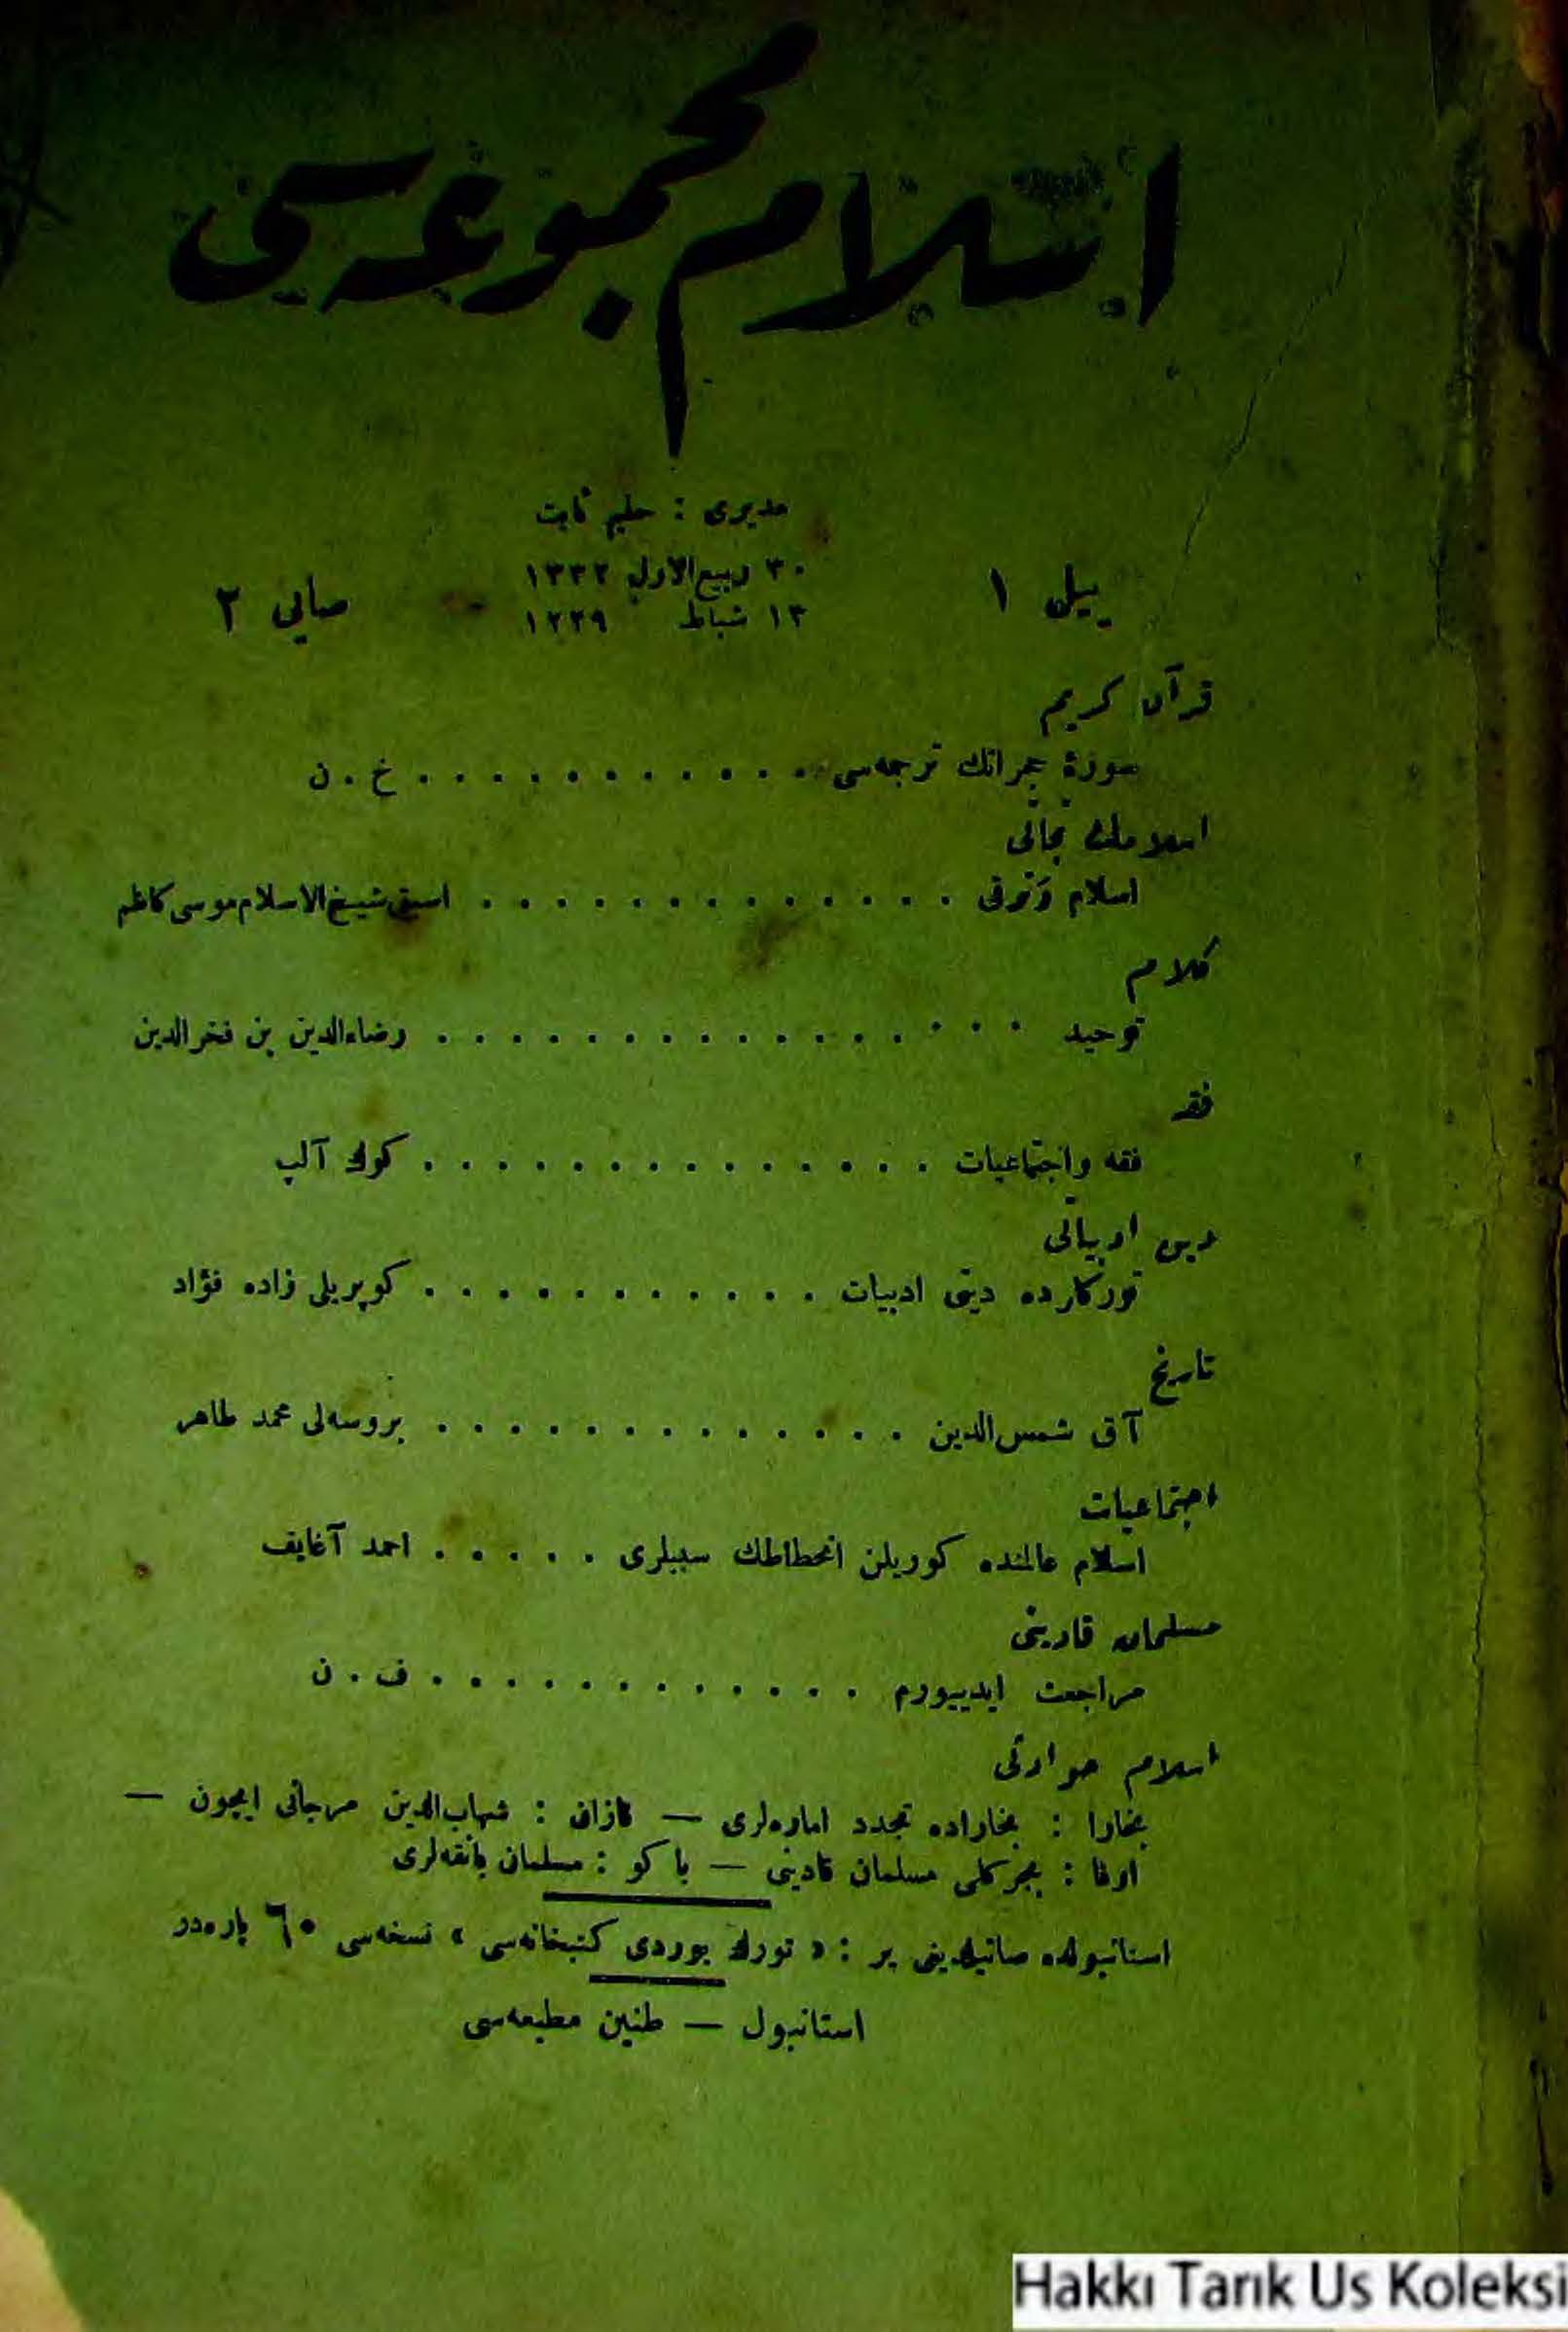 اسلام مجموعه‌سی
مدیری : حلیم ثابت
ییل ١
٣٠ ربیع‌الاول ١٣٣٢
١٣ شباط ١٣٢٩
صایی ٢
قرآن کریم
سورۀ حجراتك ترجمه‌سی . . . . . . . . . . . . خ . ن
اسلاملق نجاتی
اسلام و ترقی . . . . . . . . . . . . . اسبق شیخ‌الاسلام موسی کاظم
کلام
توحید . . . . . . . . . . . . . . . . رضاءالدین بن فخرالدین
فقه
فقه و اجتماعیات . . . . . . . . . . . . . . كوك آلپ
دین ادبیاتی
تورکلرده دینی ادبیات . . . . . . . . . . . کوپریلی زاده فؤاد
تاریخ
آق شمس‌الدین . . . . . . . . . . . . . بروسه‌لی محمد طاهر
اجتماعیات
اسلام عالمنده کوریلن انحطاطك سببلری . . . . . احمد آغایف
مسلمان قادینی
مراجعت ایدییورم . . . . . . . . . . . . ف . ن
اسلام حوادثی
بخارا : بخاراده تجدد اماره‌لری — قازان : شهاب‌الدین مرجانی ایچون —
اوفا : مسلمان قادینی — باکو : مسلمان بانقه‌لری
استانبولده صاتیلدیغی یر : « تورك یوردی کتبخانه‌سی » نسخه‌سی ٦٠ پاره‌در
استانبول — طنین مطبعه‌سی
Hakkı Tarık Us Koleksi